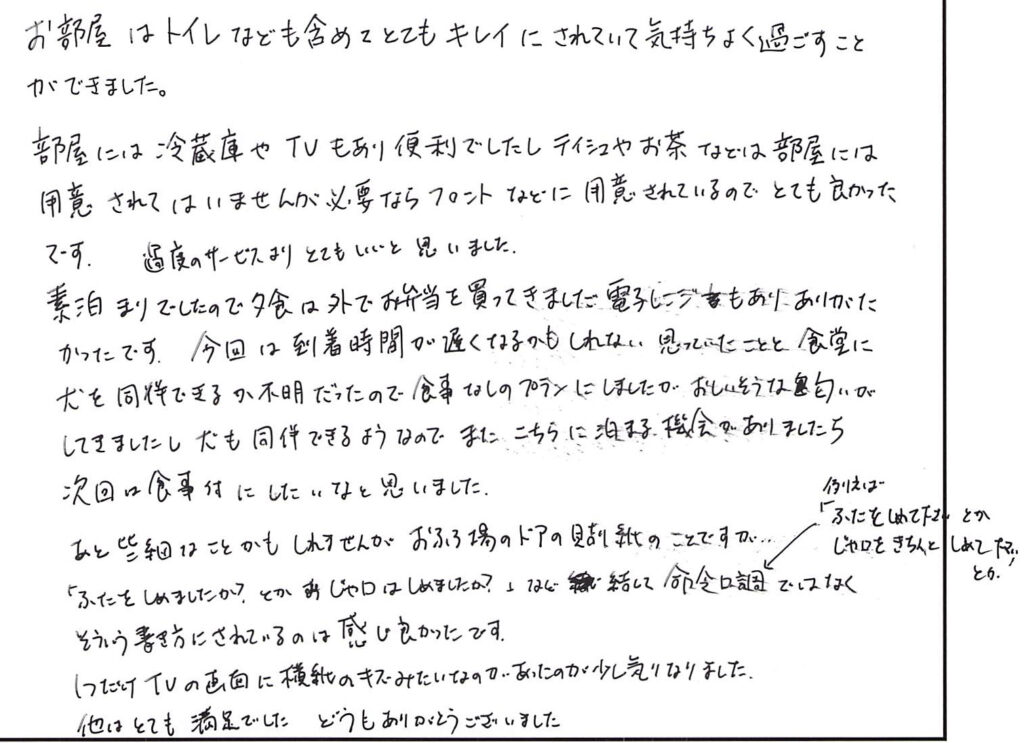 お部屋はトイレなども含めてとてもキレイにされていて気持ちよく過ごすこと
ができました。
部屋には冷蔵庫やTVもあり便利でしたしティシュやお茶などは部屋には
用意されてはいませんが必要ならフロントなどに用意されているのでとても良かった
です. 過度のサービスよりとてもいいと思いました.
素泊まりでしたので夕食は外でお弁当を買ってきました電子レンジもありありがた
かったです. 今回は到着時間が遅くなるかもしれない思っていたことと食堂に
犬を同伴できるか不明だったので食事なしのプランにしましたがおいしいそうな匂いが
してきましたし犬も同伴できるようなのでまたこちらに泊まる機会がありましたら
次回は食事付にしたいなと思いました.
あと些細なことかもしれませんがおふろ場のドアの貼り紙のことですが…
「ふたをしめましたか?とかじゃ口はしめましたか?」など決して命令口調ではなく
そういう書き方にされているのは感じ良かったです.
1つだけTVの画面に模紙のキズみたいなのがあったのが少し気になりました.
他はとても満足でした どうもありがとうございました
例えば
「ふたをしめて下さいとか
じゃ口をきちんとしめて下さい」
とか.